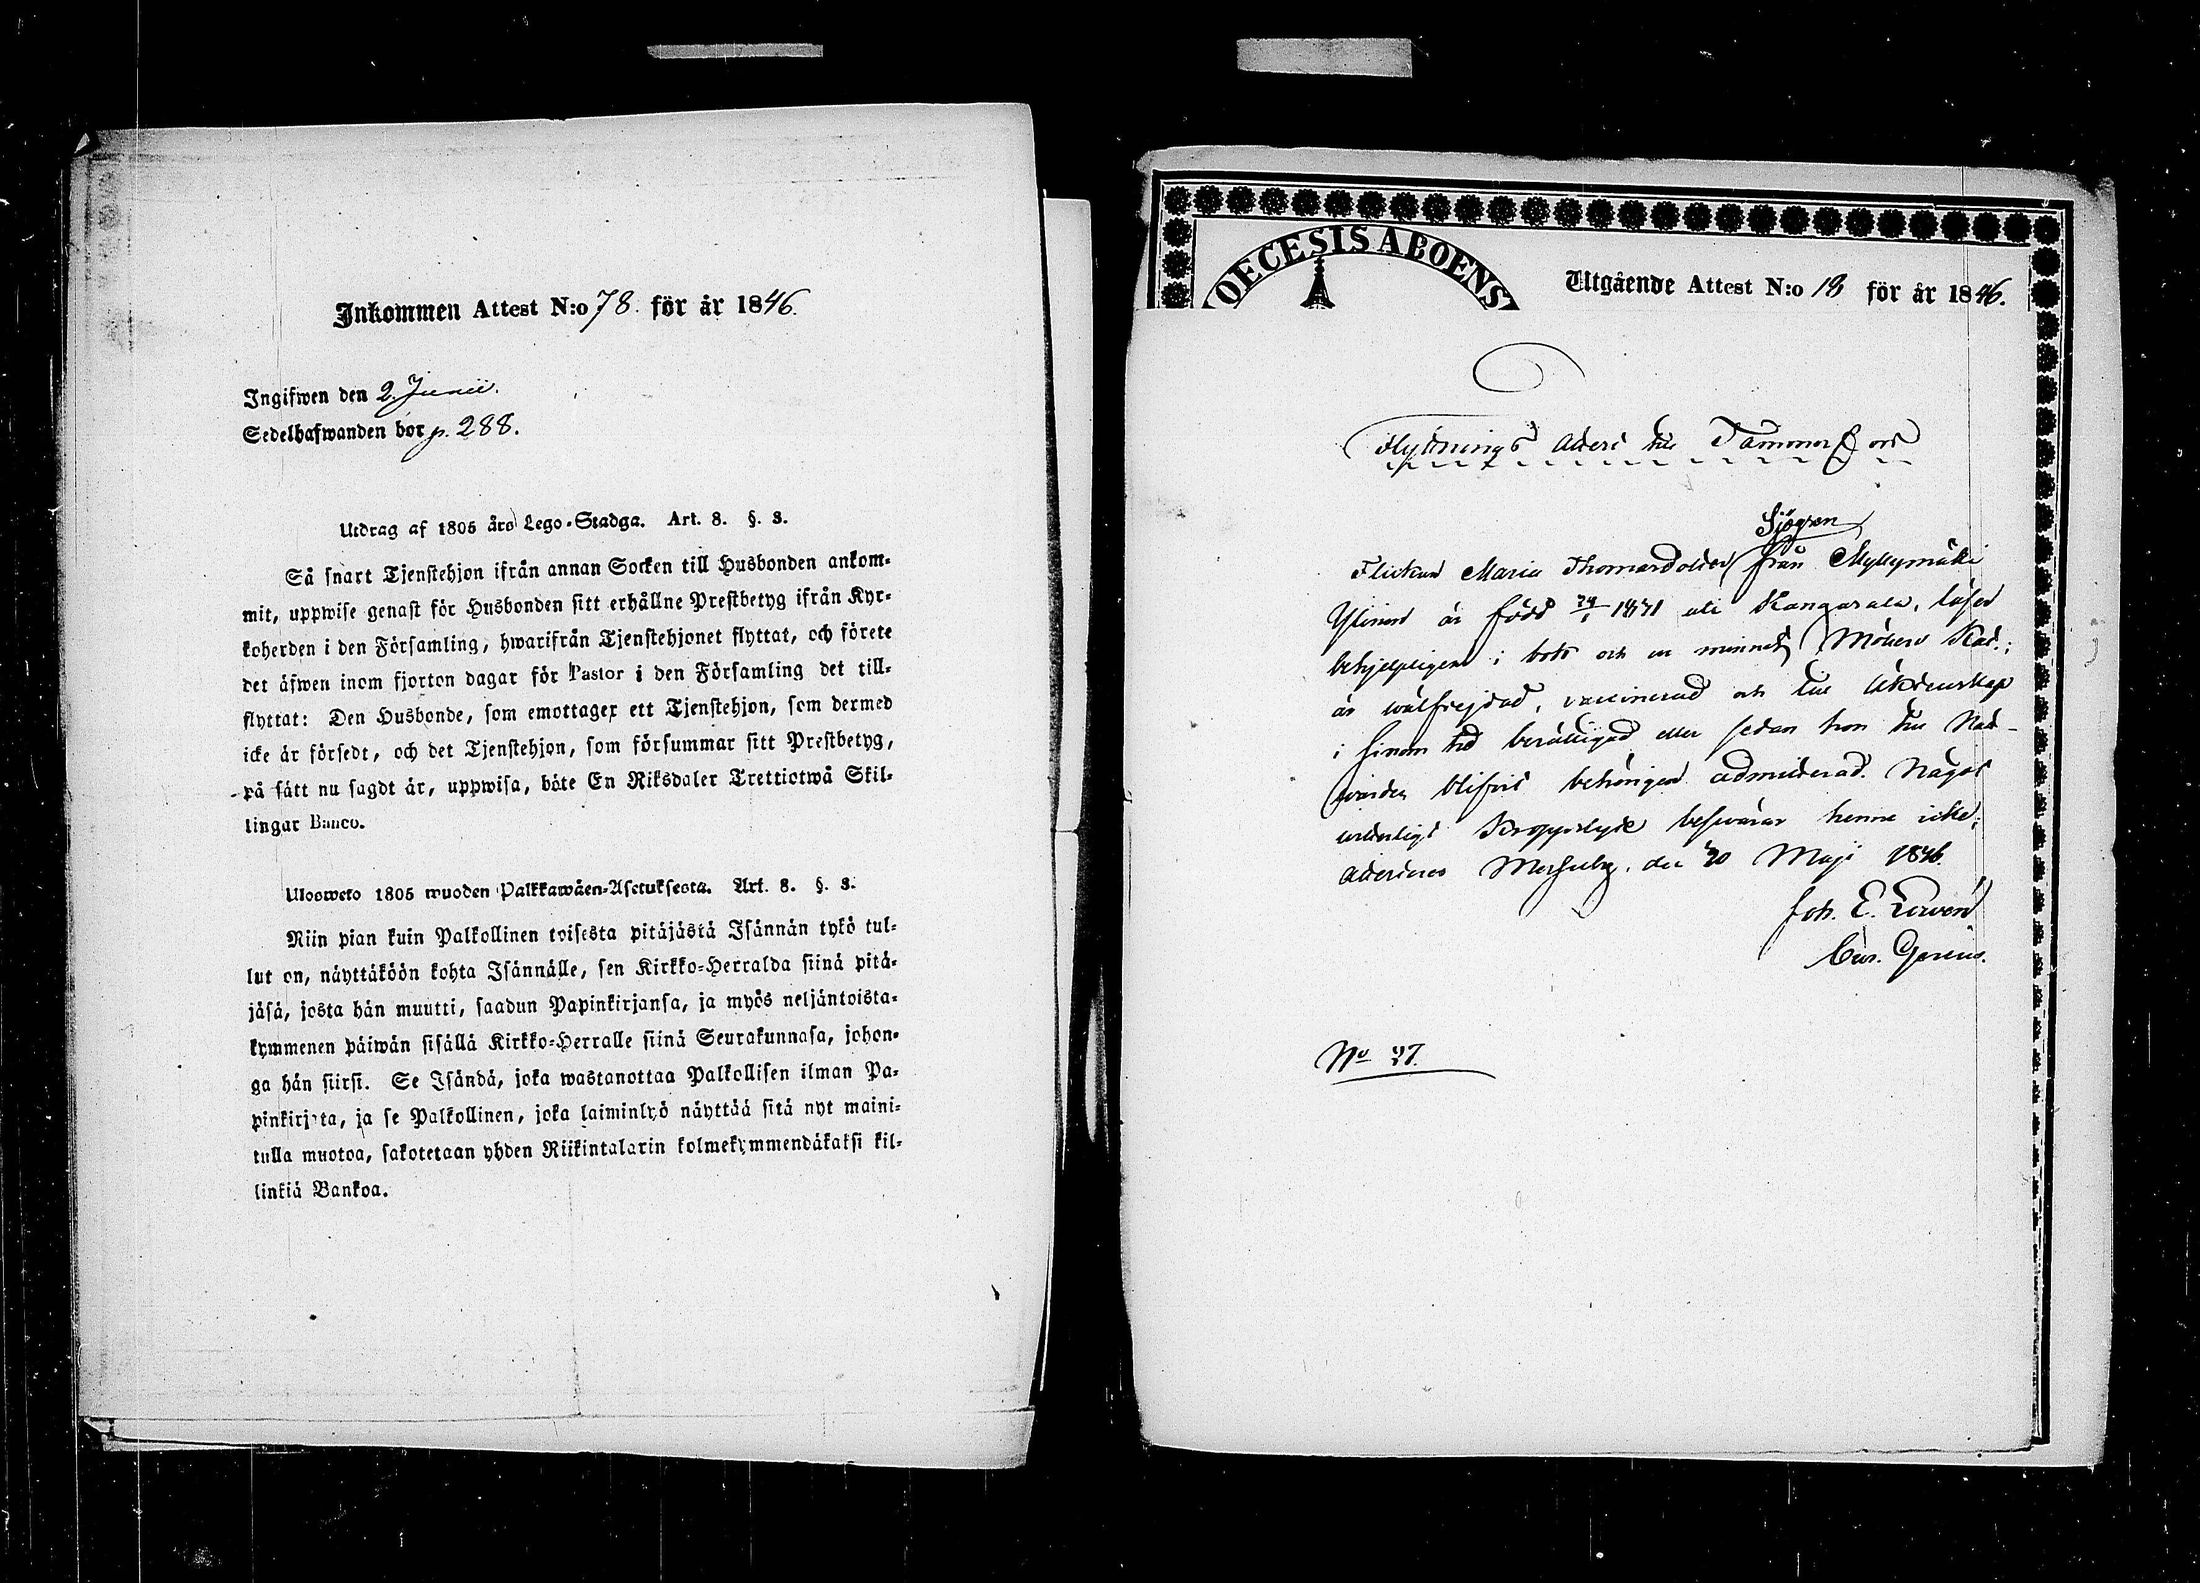 Inkommen Attest N:o 78. för år 1846.
Ingifwen den 2. Junii.
Sedelhafwanden bor p. 288.
Utdrag af 1805 års Lego-Stadga. Art. 8. §. 3.
Så snart Tjenstehjon ifrån annan Socken till Husbonden ankom-
mit, uppwise genast för Husbonden sitt erhållne Prestbetyg ifrån Kyr-
koherden i den Församling, hwarifrån Tjenstehjonet flyttat, och förete
det äfwen inom fjorton dagar för Pastor i den Församling det till-
flyttat: Den Husbonde, som emottager ett Tjenstehjon, som dermed
icke är försedt, och det Tjenstehjon, som försummar sitt Prestbetyg,
på sätt nu sagdt är, uppwisa, böte En Riksdaler Trettiotwå Skil-
lingar Banco.
Ulosweto 1805 wuoden Palkkawäen-Asetuksesta. Art. 8. §. 3.
Niin pian kuin Palkollinen toisesta pitäjästä Isännän tykö tul-
lut on, näyttäköön kohta Isännälle, sen Kirkko-Herralda siinä pitä-
jäsä, josta hän muutti, saadun Papinkirjansa, ja myös neljäntoista-
kymmenen päiwän sisällä Kirkko-Herralle siinä Seurakunnasa, johon-
ga hän siirsi. Se Isändä, joka wastanottaa Palkollisen ilman Pa-
pinkirjata, ja se Palkollinen, joka laiminlyö näyttää sitä nyt maini-
tulla muotoa, sakotetaan yhden Riikintalarin kolmekymmendäkaksi kil-
linkiä Bankoa.
OECESIS ABOENS
Utgående Attest N:o 13 för år 1846.
Flyttnings Attest till Tammerfors
Sjögren
Flickan Maria Thomasdotter från Myllymäki
är född 1831 uti Kangasala, läser
behjelpligen i bok och ur minnet
är wälfrejdad, vaccinerad och till Äktenskap
i sinom tid berättigad eller sedan hon till Natt-
warden blifvit behörigen admitterad. Något
ordenligt Kroppslyte beswärar henne icke;
attesteras den 20 Maji 1846.
Joh. E.
No 37.